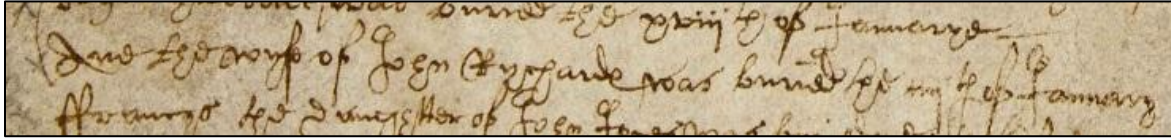 was buried the xviij th of Januarye
Ane the wyfe of John Rycharde was buried the th of January
ffrancys the daughter of John